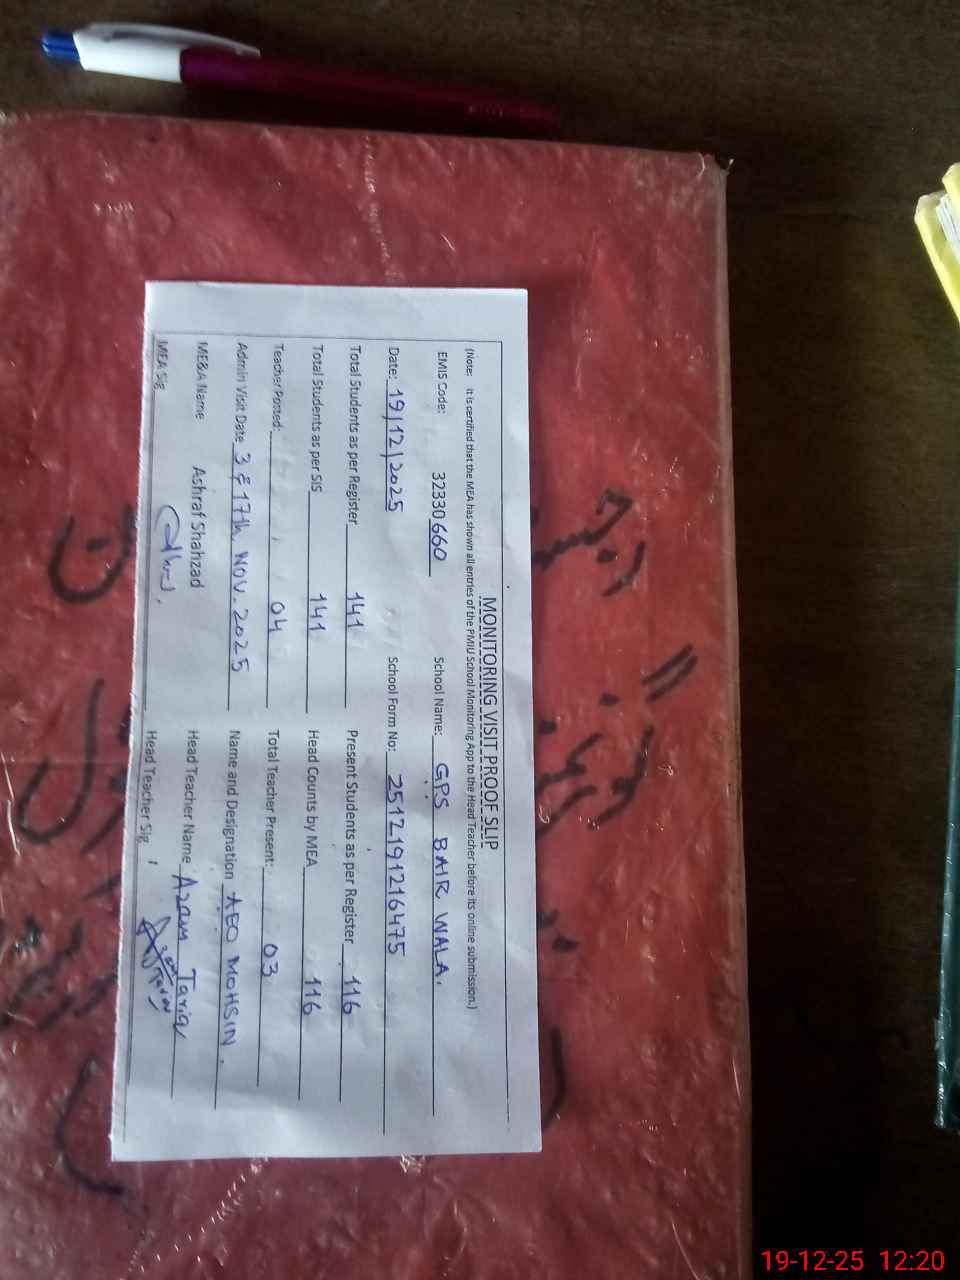 MONITORING VISIT PROOF SLIP
(Note: It is certified that the MEA has shown all entries of the PMIU School Monitoring App to the Head Teacher before its online submission.)
EMIS Code: 32330660 School Name: GPS BAIR WALA.
Date: 19/12/2025 School Form No: 2512191216475
Total Students as per Register 141 Present Students as per Register 116
Total Students as per SIS 141 Head Counts by MEA 116
Teacher Posted: 04 Total Teacher Present: 03
Admin Visit Date 3 & 17th NOV. 2025 Name and Designation AEO MOHSIN.
ME&A Name Ashraf Shahzad Head Teacher Name Azam Tariq
MEA Sig Head Teacher Sig
19-12-25 12:20